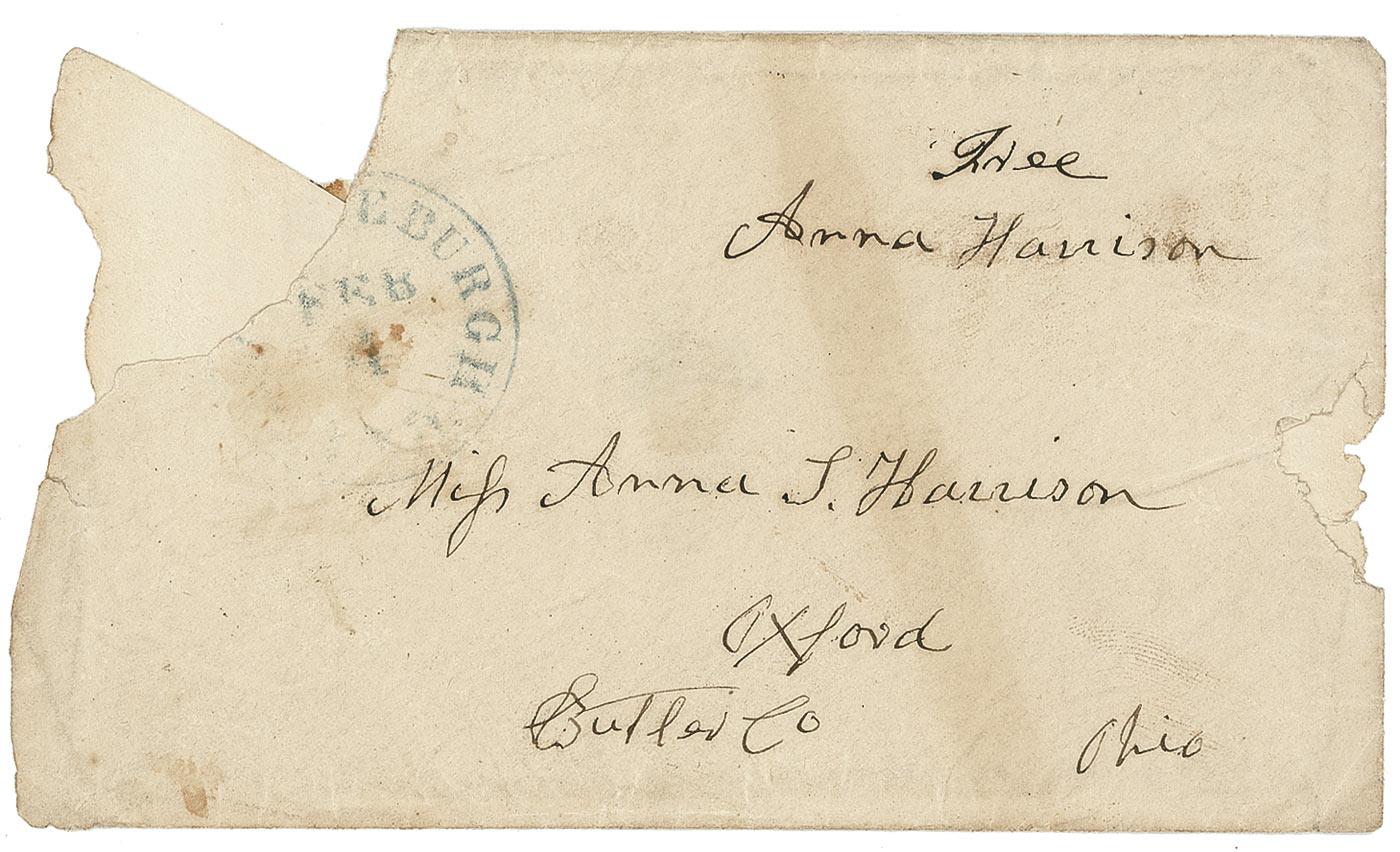 Free
Anna Harrison
EBURGH
FEB
Miss Anna S. Harrison
Oxford
Butler Co
Ohio